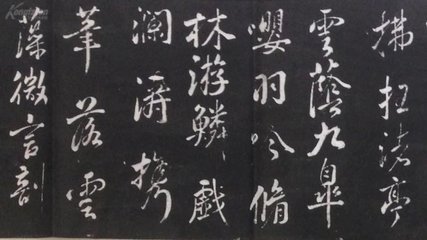 拂枉渚亭
雲蔭九皋
嚶羽吟脩
林游鱗戲
瀾濤携
筆落雲
藻微言剖